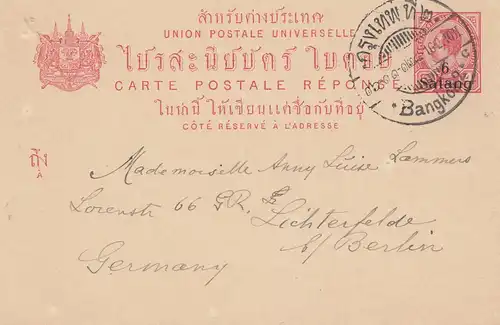 สำหรับต่างประเทศ
UNION POSTALE UNIVERSELLE
ไปรสะนียบัตร์ ใบตอบ
CARTE POSTALE RÉPONSE
ในที่นี้ ให้เขียนแต่ชื่อกับที่อยู่
CÔTÉ RÉSERVÉ À L'ADRESSE
Bangkok
6
ถึง
A
Mademoiselle Anny Luise Lammers
Lorenstr 66 G.R.
Lichterfelde
b/ Berlin
Germany